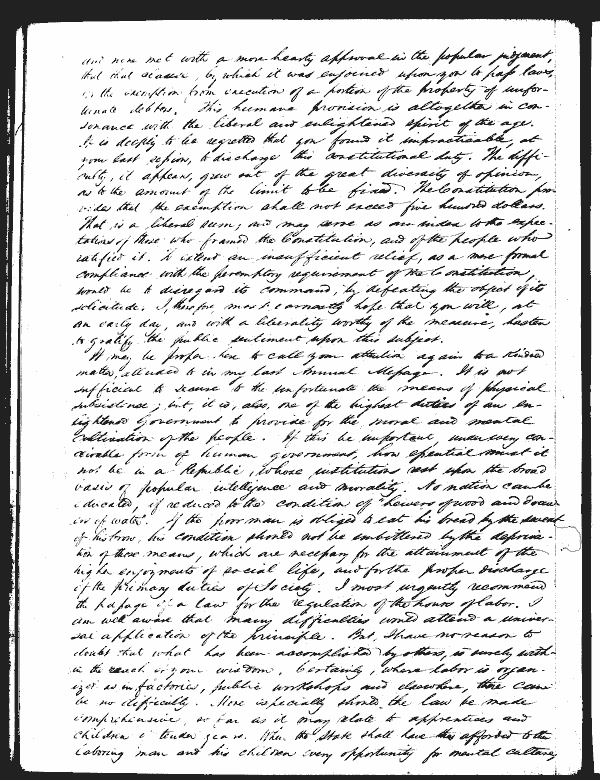 and none met with a more hearty approval in the popular judgment,
that that clause, by which it was enjoined upon you to pass laws,
for the exemption from execution of a portion of the property of unfor-
tunate debtors. This humane provision is altogether in con-
sonance with the liberal and enlightened spirit of the age.
It is deeply to be regretted that you found it impracticable, at
your last session, to discharge this constitutional duty. The diffi-
culty, it appears, grew out of the great diversity of opinion,
as to the amount of the limit to be fixed. The Constitution pro-
vides that the exemption shall not exceed five hundred dollars.
That is a liberal sum, and may serve as an index to the expec-
tations of those who framed the Constitution, and of the people who
ratified it. To extend an insufficient relief, as a mere formal
compliance with the peremptory requirement of the Constitution,
would be to disregard its command, by defeating the object of its
solicitude. I, therefore, most earnestly hope that you will, at
an early day, and with a liberality worthy of the measure, hasten
to gratify the public sentiment upon this subject.
It may be proper here to call your attention again to a kindred
matter, alluded to in my last Annual Message. It is not
sufficient to secure to the unfortunate the means of physical
subsistence; but, it is, also, one of the highest duties of an en-
lightened Government to provide for the moral and mental
cultivation of the people. If this be important, under every con-
ceivable form of human government, how essential must it
not be in a Republic, whose institutions rest upon the broad
basis of popular intelligence and morality. No nation can be
educated, if reduced to the condition of "hewers of wood and draw-
ers of water". If the poor man is obliged to eat his bread by the sweat
of his brow, his condition should not be embittered by the depriva-
tion of those means, which are necessary for the attainment of the
higher enjoyments of social life, and for the proper discharge
of the primary duties of Society. I most urgently recommend
the passage of a law for the regulation of the hours of labor. I
am well aware that many difficulties would attend a univer-
sal application of the principle. But, I have no reason to
doubt that what has been accomplished by others, is surely with-
in the reach of your wisdom. Certainly, where labor is organ-
ized as in factories, public workshops and elsewhere, there can
be no difficulty. More especially should the law be made
comprehensive, so far as it may relate to apprentices and
children of tender years. When the State shall have thus afforded to the
laboring man and his children every opportunity for mental culture,